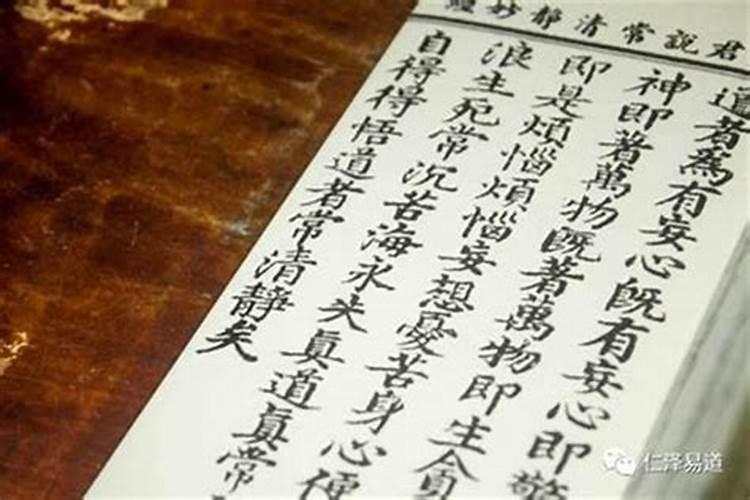 君說常清静妙經
道者為有妄心既有妄心即驚
神即著萬物既著萬物即生貪
即是煩惱煩惱妄想憂苦身心便
浪生死常沉苦海永失真道真常
自得得悟道者常清靜矣
仁泽易道